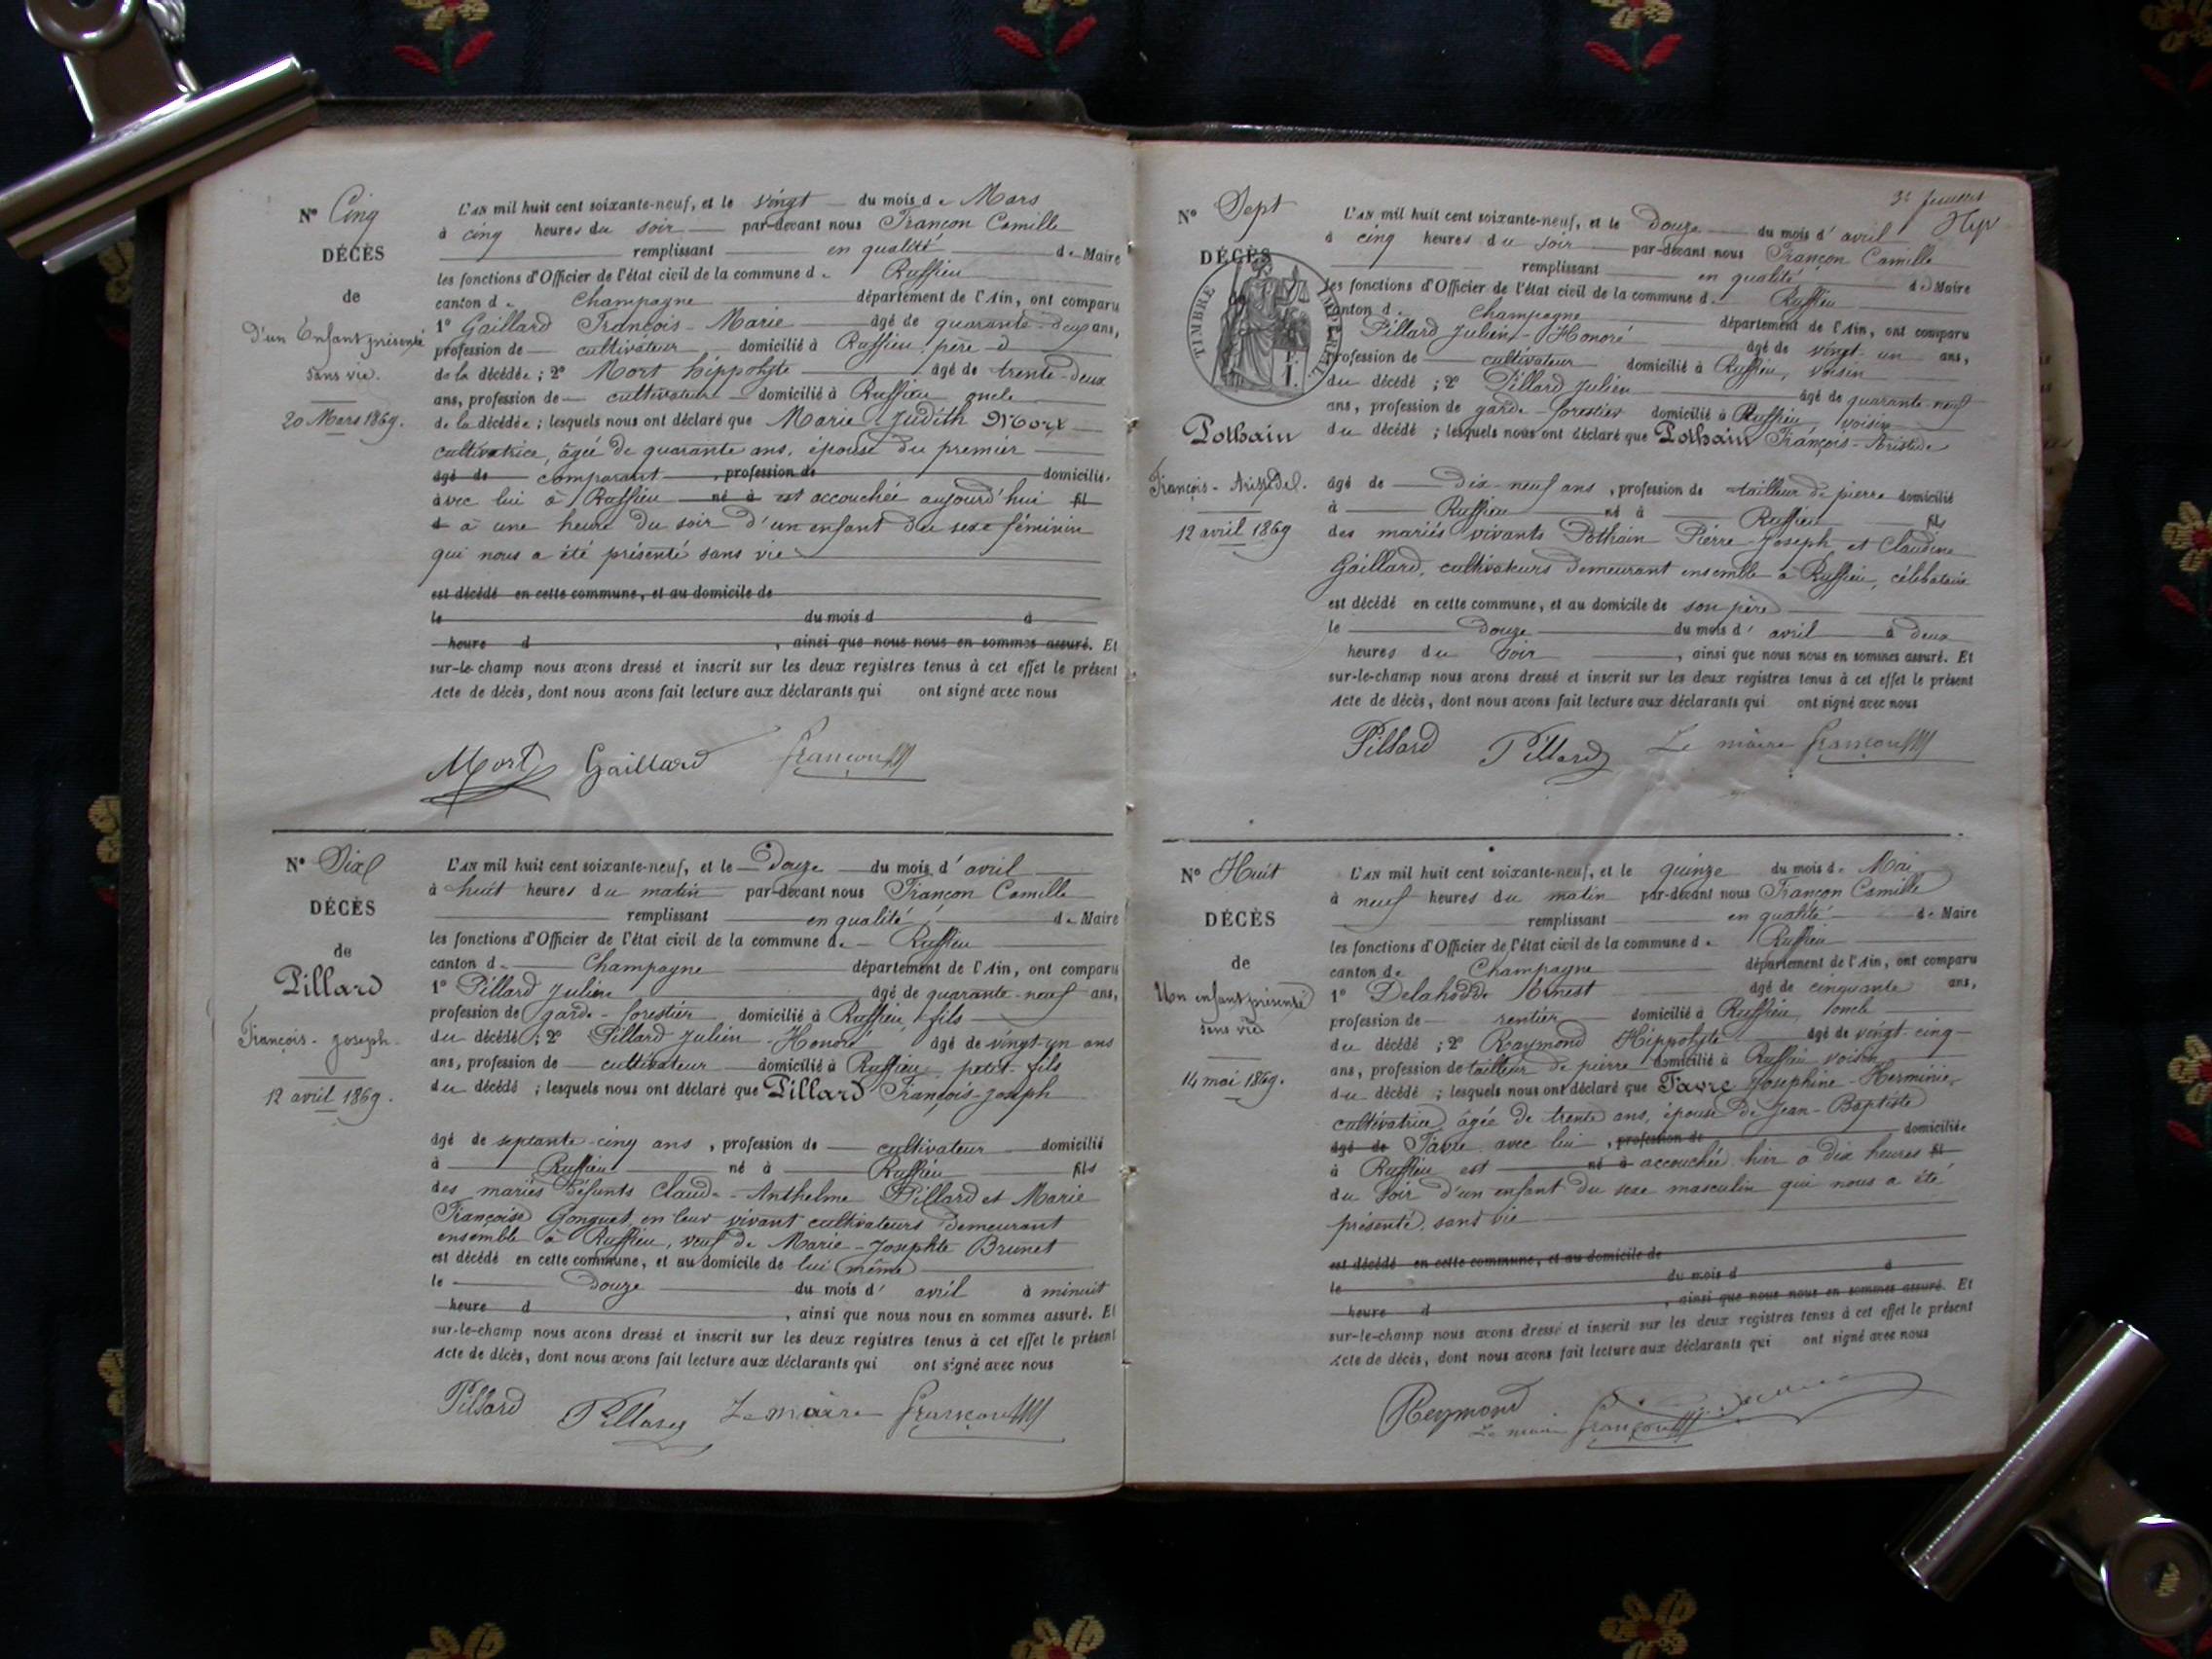 N° Cinq
DÉCÈS
de
D'un Enfant présenté
sans vie.
20 Mars 1869.
L'AN mil huit cent soixante-neuf, et le vingt du mois de Mars
à cinq heures du soir par-devant nous Françon Camille
remplissant en qualité de Maire
les fonctions d'Officier de l'état civil de la commune de Ruffieu
canton de Champagne département de l'Ain, ont comparu
1° Gaillard François-Marie âgé de quarante-deux ans,
profession de cultivateur domicilié à Ruffieu, père d
de la décédée ; 2° Mort hippolyte âgé de trente-deux
ans, profession de cultivateur domicilié à Ruffieu oncle
de la décédée ; lesquels nous ont déclaré que Marie Judith Mort
cultivatrice, âgée de quarante ans, épouse du premier
âgé de comparant, profession de domicilié.
avec lui à Ruffieu né à est accouchée aujourd'hui fil
d à une heure du soir d'un enfant du sexe féminin
qui nous a été présenté sans vie
est décédé en cette commune, et au domicile de
le du mois d à
heure d , ainsi que nous nous en sommes assuré. Et
sur-le-champ nous avons dressé et inscrit sur les deux registres tenus à cet effet le présent
Acte de décès, dont nous avons fait lecture aux déclarants qui ont signé avec nous
Mort Gaillard Françon
N° Six
DÉCÈS
de
Pillard
François-Joseph
12 avril 1869.
L'AN mil huit cent soixante-neuf, et le Douze du mois d'avril
à huit heures du matin par-devant nous Françon Camille
remplissant en qualité de Maire
les fonctions d'Officier de l'état civil de la commune de Ruffieu
canton de Champagne département de l'Ain, ont comparu
1° Pillard Julien âgé de quarante-neuf ans,
profession de garde-forestier domicilié à Ruffieu, fils
du décédé ; 2° Pillard Julien-Honoré âgé de vingt-un ans
ans, profession de cultivateur domicilié à Ruffieu, petit-fils
du décédé ; lesquels nous ont déclaré que Pillard François-Joseph
âgé de septante-cinq ans, profession de cultivateur domicilié
à Ruffieu né à Ruffieu fils
des mariés défunts Claude-Anthelme Pillard et Marie
Françoise Gonguet, en leur vivant cultivateurs demeurant
ensemble à Ruffieu, veuf de Marie-Josephte Brunet
est décédé en cette commune, et au domicile de lui même
le douze du mois d'avril à minuit
heure d , ainsi que nous nous en sommes assuré. Et
sur-le-champ nous avons dressé et inscrit sur les deux registres tenus à cet effet le présent
Acte de décès, dont nous avons fait lecture aux déclarants qui ont signé avec nous
Pillard Pillard Le maire Françon
N° Sept
DÉCÈS
de
TIMBRE IMPÉRIAL
Pothain
François-Aristide.
12 avril 1869
L'AN mil huit cent soixante-neuf, et le Douze du mois d'avril
à cinq heures du soir par-devant nous Françon Camille
remplissant en qualité de Maire
les fonctions d'Officier de l'état civil de la commune de Ruffieu
canton de Champagne département de l'Ain, ont comparu
Pillard Julien-Honoré âgé de vingt-un ans,
profession de cultivateur domicilié à Ruffieu, voisin
du décédé ; 2° Pillard Julien âgé de quarante-neuf
ans, profession de garde-forestier domicilié à Ruffieu voisin
du décédé ; lesquels nous ont déclaré que Pothain François-Aristide
âgé de Dix-neuf ans, profession de tailleur de pierre domicilié
à Ruffieu né à Ruffieu fils
des mariés vivants Pothain Pierre-Joseph et Claudine
Gaillard, cultivateurs demeurant ensemble à Ruffieu, célibataire
est décédé en cette commune, et au domicile de son père
le Douze du mois d'avril à deux
heures du soir , ainsi que nous nous en sommes assuré. Et
sur-le-champ nous avons dressé et inscrit sur les deux registres tenus à cet effet le présent
Acte de décès, dont nous avons fait lecture aux déclarants qui ont signé avec nous
Pillard Pillard Le maire Françon
N° Huit
DÉCÈS
de
Un enfant présenté
sans vie
14 mai 1869.
L'AN mil huit cent soixante-neuf, et le quinze du mois de Mai
à neuf heures du matin par-devant nous Françon Camille
remplissant en qualité de Maire
les fonctions d'Officier de l'état civil de la commune de Ruffieu
canton de Champagne département de l'Ain, ont comparu
1° Ernest âgé de cinquante ans,
profession de rentier domicilié à Ruffieu, oncle
du décédé ; 2° Raymond Hippolyte âgé de vingt-cinq
ans, profession de tailleur de pierre domicilié à Ruffieu voisin
du décédé ; lesquels nous ont déclaré que Favre Josephine-Herminie,
cultivatrice, âgée de trente ans, épouse de Jean-Baptiste
âgé de Favre avec lui, profession de domiciliée
à Ruffieu est né à accouchée hier à dix heures fil
du soir d'un enfant du sexe masculin qui nous a été
présenté sans vie
est décédé en cette commune, et au domicile de
le du mois d à
heure d , ainsi que nous nous en sommes assuré. Et
sur-le-champ nous avons dressé et inscrit sur les deux registres tenus à cet effet le présent
Acte de décès, dont nous avons fait lecture aux déclarants qui ont signé avec nous
Reymond
Le maire Françon